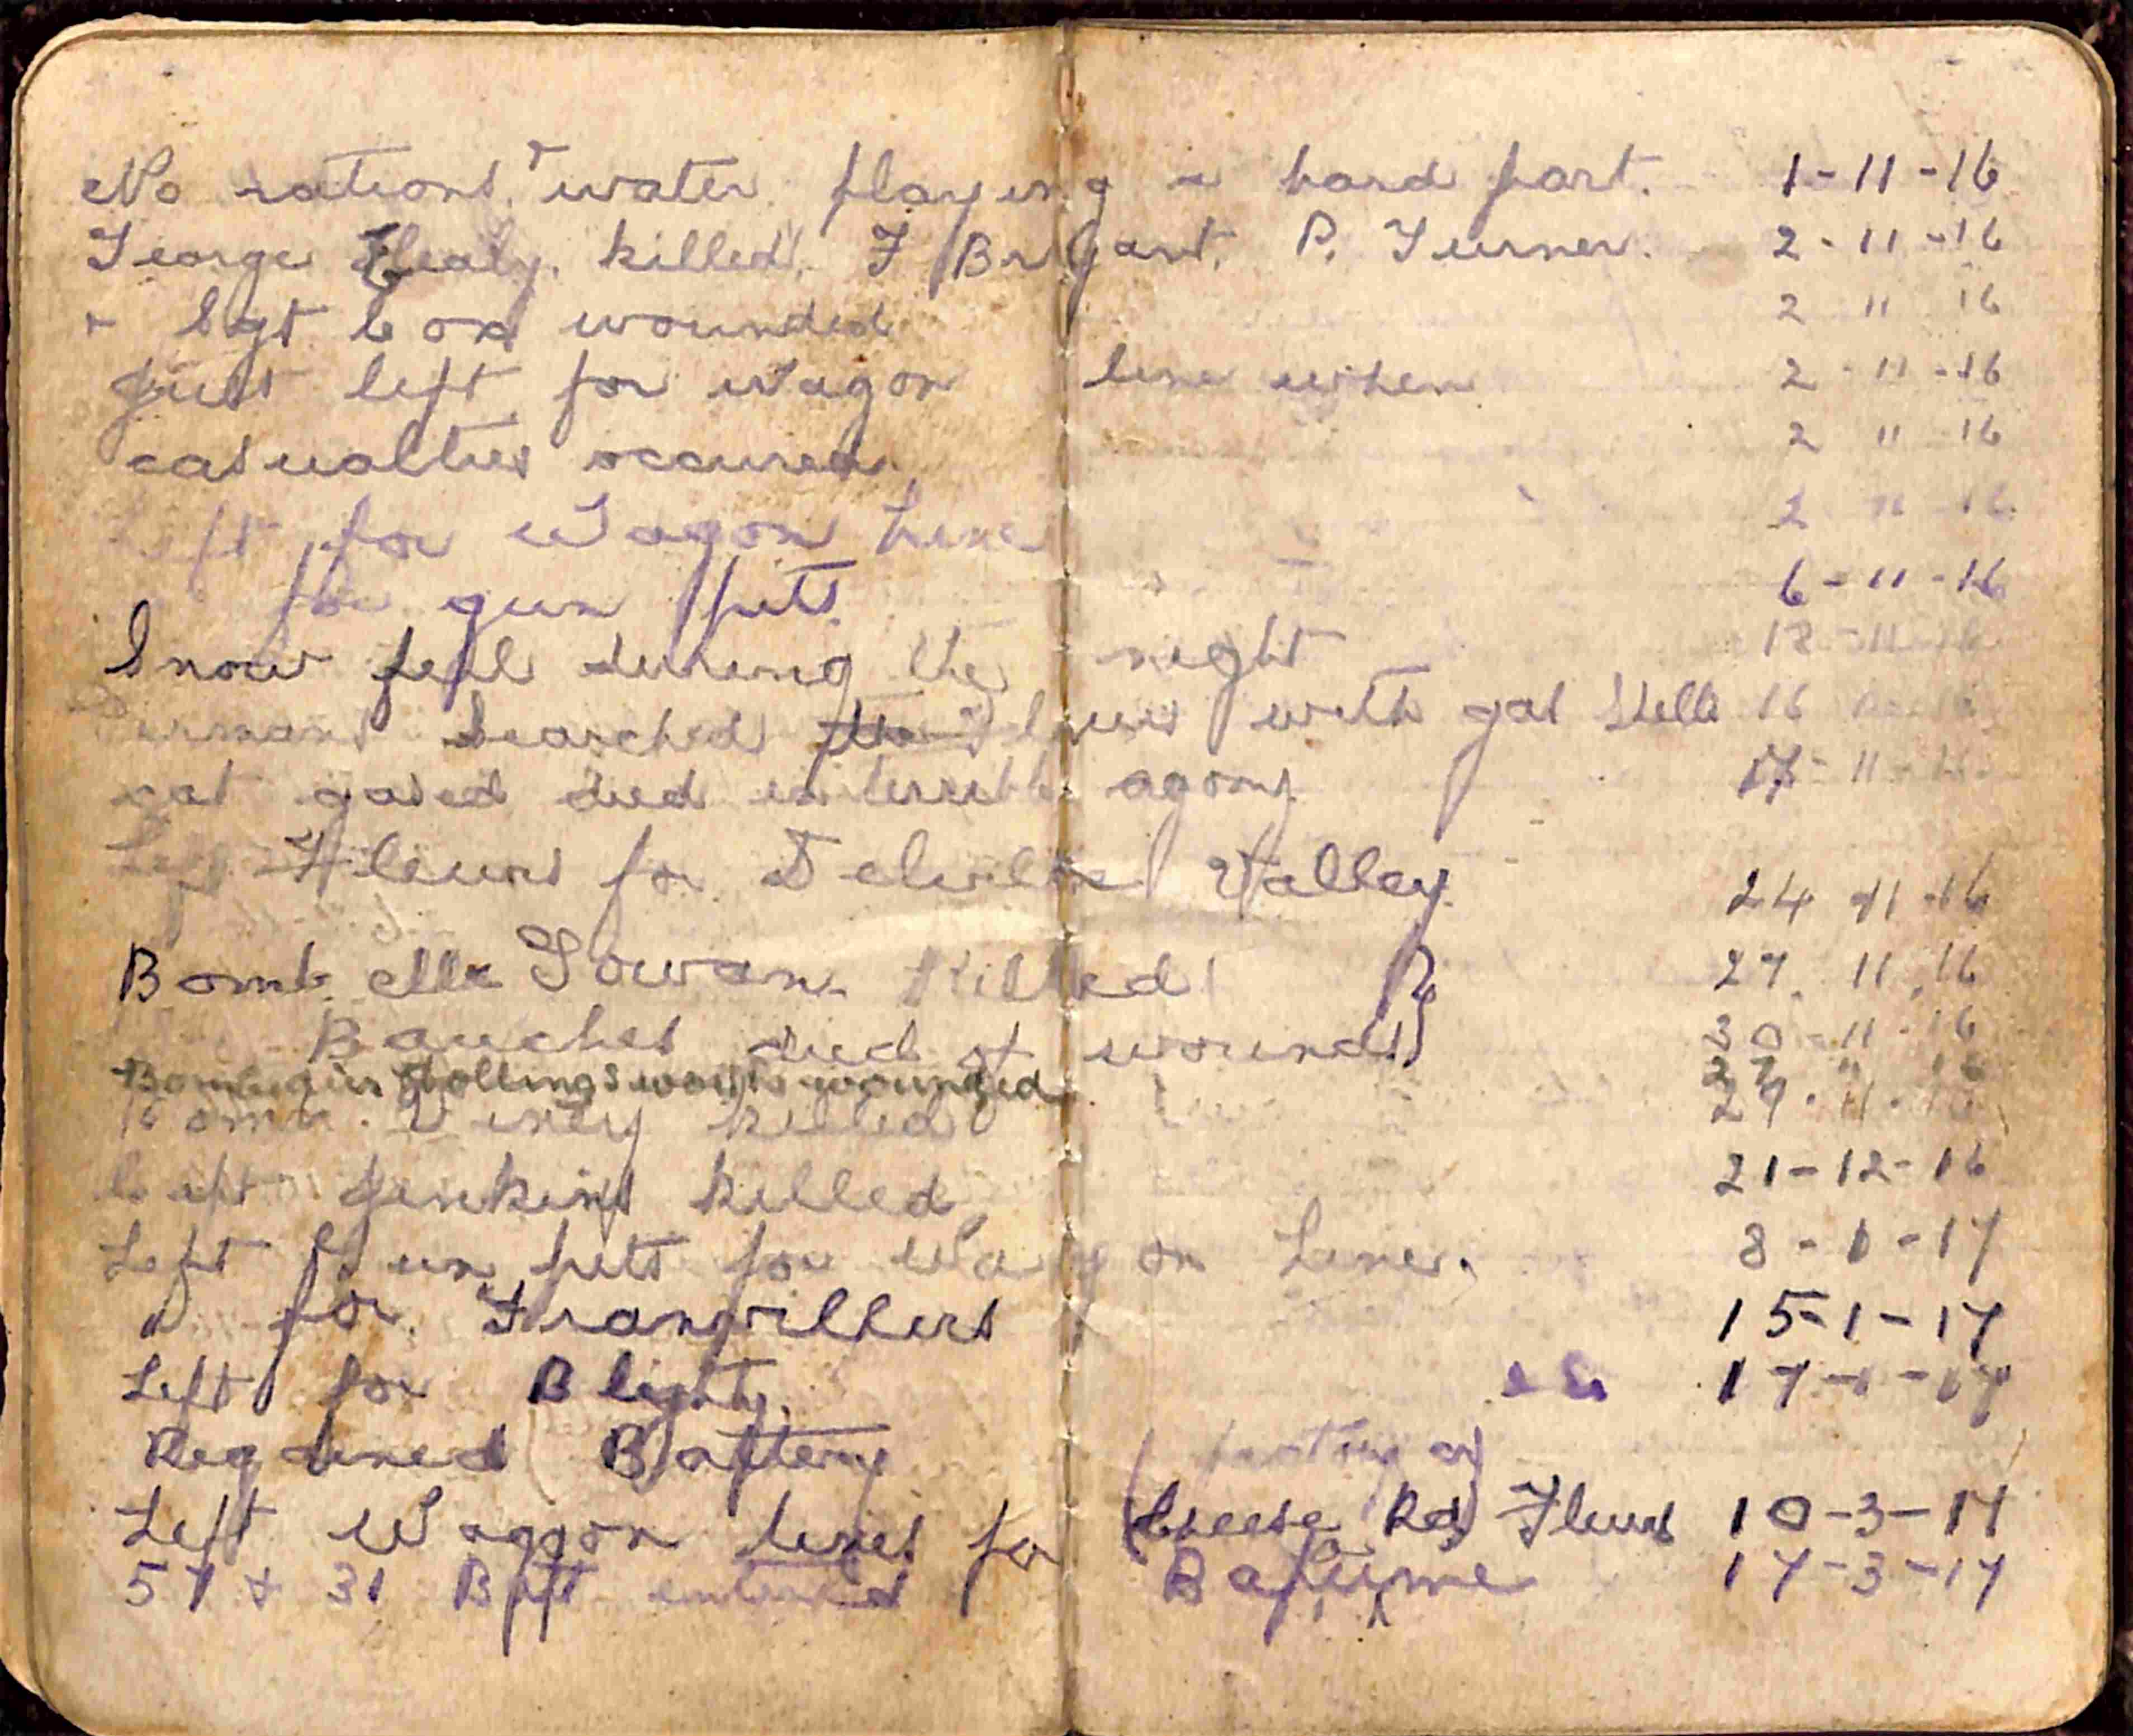 No rations + water playing a hard part. 1-11-16
George Healy killed, F Bryant, P. Turner. 2-11-16
+ Sgt Cox wounded 2 11 16
Just left for Wagon line when 2-11-16
casualties occured. 2 11 16
Left for Wagon Line 2 11 16
for gun pits. 6-11-16
Snow fell during the night 18-11-16
Germans searched Fleurs with gas Shells 16
got gased died in terrible agony 17-11-16
Left Fleurs for Delville Valley. 24-11-16
Bomb. Mc Gowan. Killed 27. 11. 16
Bauches died of wounds 30-11-16
Bombadier Hollingsworth wounded 27 " 16
Bomb. killed 29-11-16
Capt Jenkins killed. 21-12-16
Left Gun pits for Wagon Line. 8-1-17
" for Franvillers 15-1-17
Left for Blighty. 17-1-17
Regained Battery
Left Waggon lines for (Cheese Rd) Fleurs 10-3-17
57 + 31 Batt entered Bapaume 17-3-17